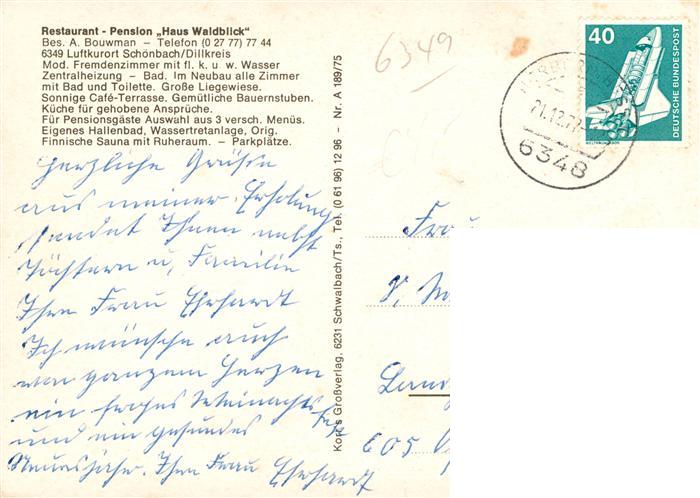 Restaurant - Pension „Haus Waldblick"
Bes. A. Bouwman – Telefon (0 27 77) 77 44
6349 Luftkurort Schönbach/Dillkreis
Mod. Fremdenzimmer mit fl. k. u. w. Wasser
Zentralheizung – Bad. Im Neubau alle Zimmer
mit Bad und Toilette. Große Liegewiese.
Sonnige Café-Terrasse. Gemütliche Bauernstuben.
Küche für gehobene Ansprüche.
Für Pensionsgäste Auswahl aus 3 versch. Menüs.
Eigenes Hallenbad, Wassertretanlage, Orig.
Finnische Sauna mit Ruheraum. – Parkplätze.
Herzliche Grüße
aus meiner Erholung
sendet Ihnen nebst
Töchtern u. Familie
Ihre Frau Ehrhardt
Ich wünsche auch
von ganzem Herzen
ein frohes Weinachtsfest
und ein gesundes
Neuesjahr. Ihre Frau Ehrhardt
Korr's Großverlag, 6231 Schwalbach/Ts., Tel. (0 61 96) 12 96 – Nr. A 189/75
6349
21.12.77
6348
40
DEUTSCHE BUNDESPOST
605